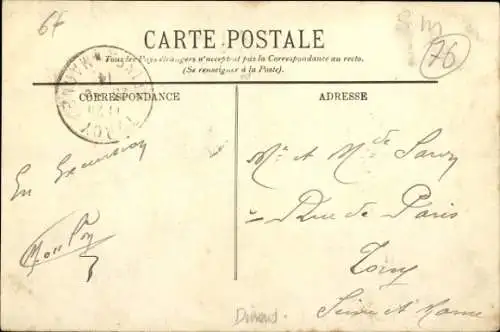 64
S M
76
CARTE POSTALE
Tous les Pays étrangers n'acceptent pas la Correspondance au recto.
(Se renseigner à la Poste).
CORRESPONDANCE
ADRESSE
En Excursion
Mr et Mme
Rue de Paris
Torcy
Seine et Marne